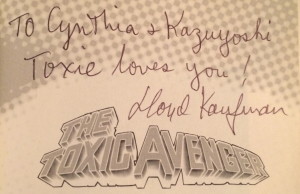 To Cynthia & Kazuyoshi
Toxie loves you!
Lloyd Kaufman
THE
TOXIC AVENGER